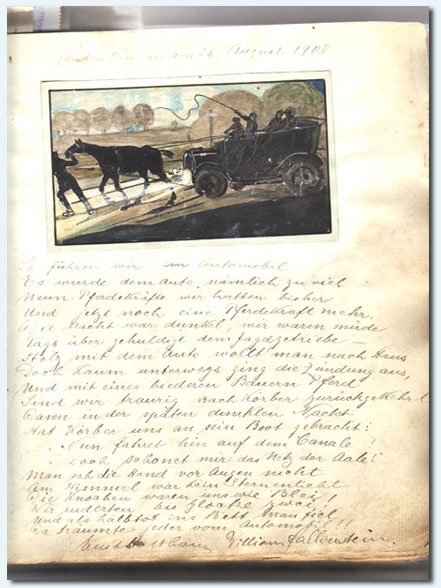 Andenken an den 28. August 1908
So fuhren wir im Automobil
Es wurde dem Auto, nämlich zu viel
Neun Pferdekräfte wir hatten bisher
Und jetzt noch eine Pferdekraft mehr.
Die Nacht war dunkel, wir waren müde
Tags über gehuldigt dem Jagdgetriebe –
Stolz mit dem Auto wollt man nach Haus
Doch kaum unterwegs ging die Zündung aus,
Und mit eines biederen Bauern Pferd
Sind wir traurig nach Körber zurückgekehrt
Dann in der späten dunklen Nacht
Hat Körber uns an sein Boot gebracht:
"Nun fahret hin auf dem Canale!
Doch schonet mir das Netz der Aale!"
Man sah die Hand vor Augen nicht
Am Himmel war kein Sternenlicht
Die Knochen waren uns wie Blei!
Wir ruderten bis Glocke zwei
Und als halbtot ins Bett man fiel
Da träumte jeder vom Automobil!!
Ernst William Fallenstein.